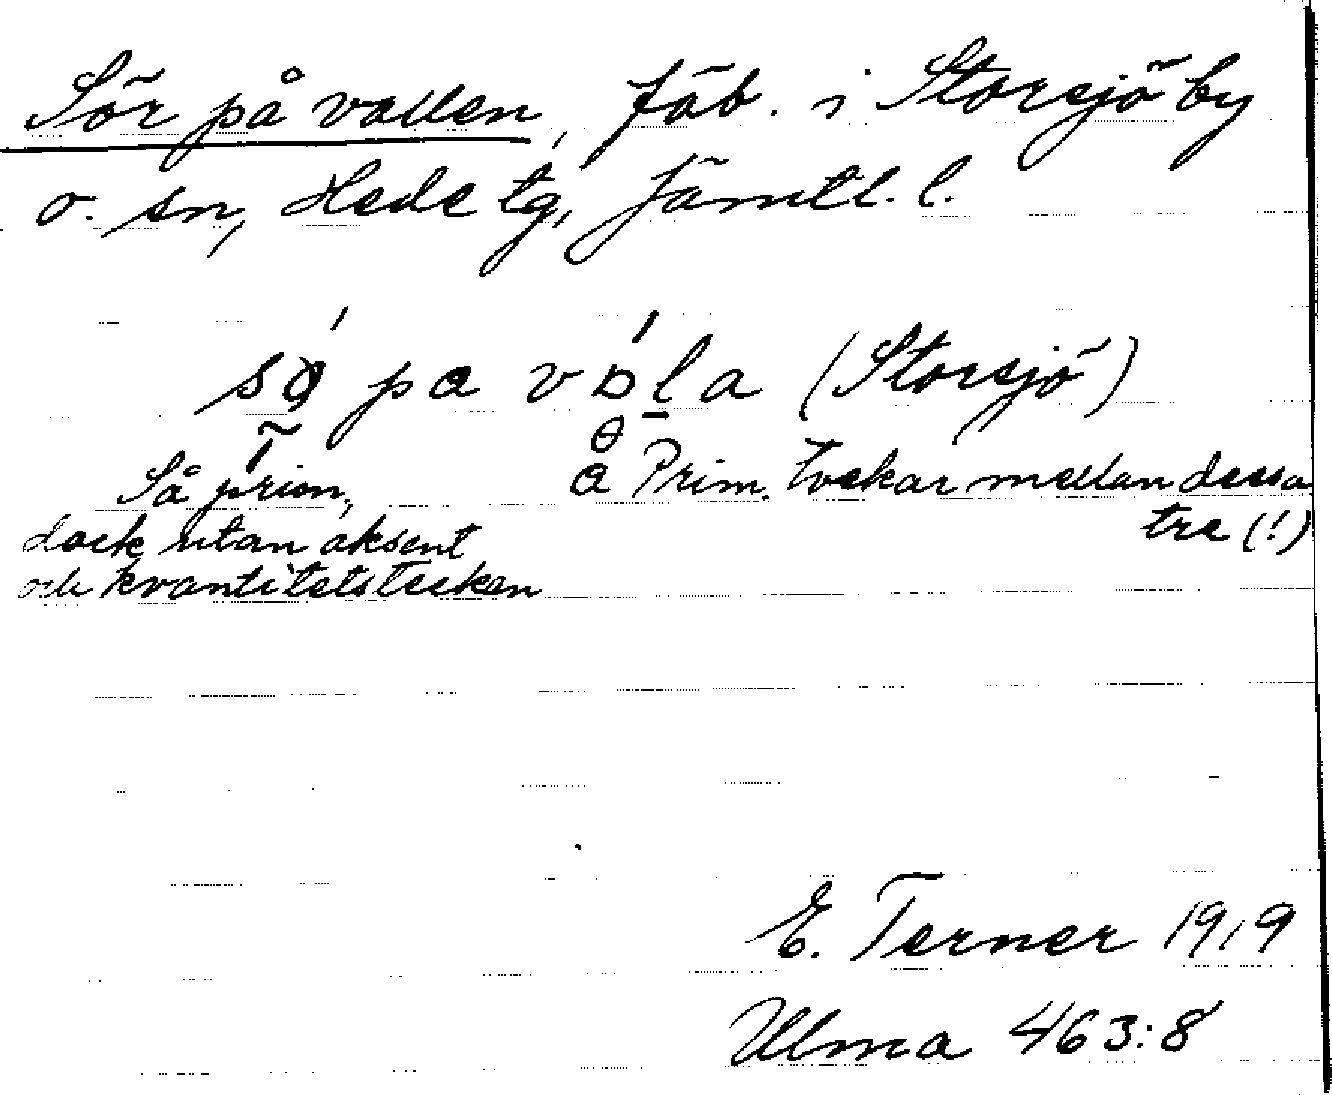 Sör på vallen, fäb. i Storsjö by
o. sn, Hede tg, Jämtl. l.
pa vɒ́la (Storsjö)
Så prim., å Prim. tvekar mellan dessa
tre (!)
dock utan aksent
och kvantitetstecken
E. Terner 1919
Ulma 463:8